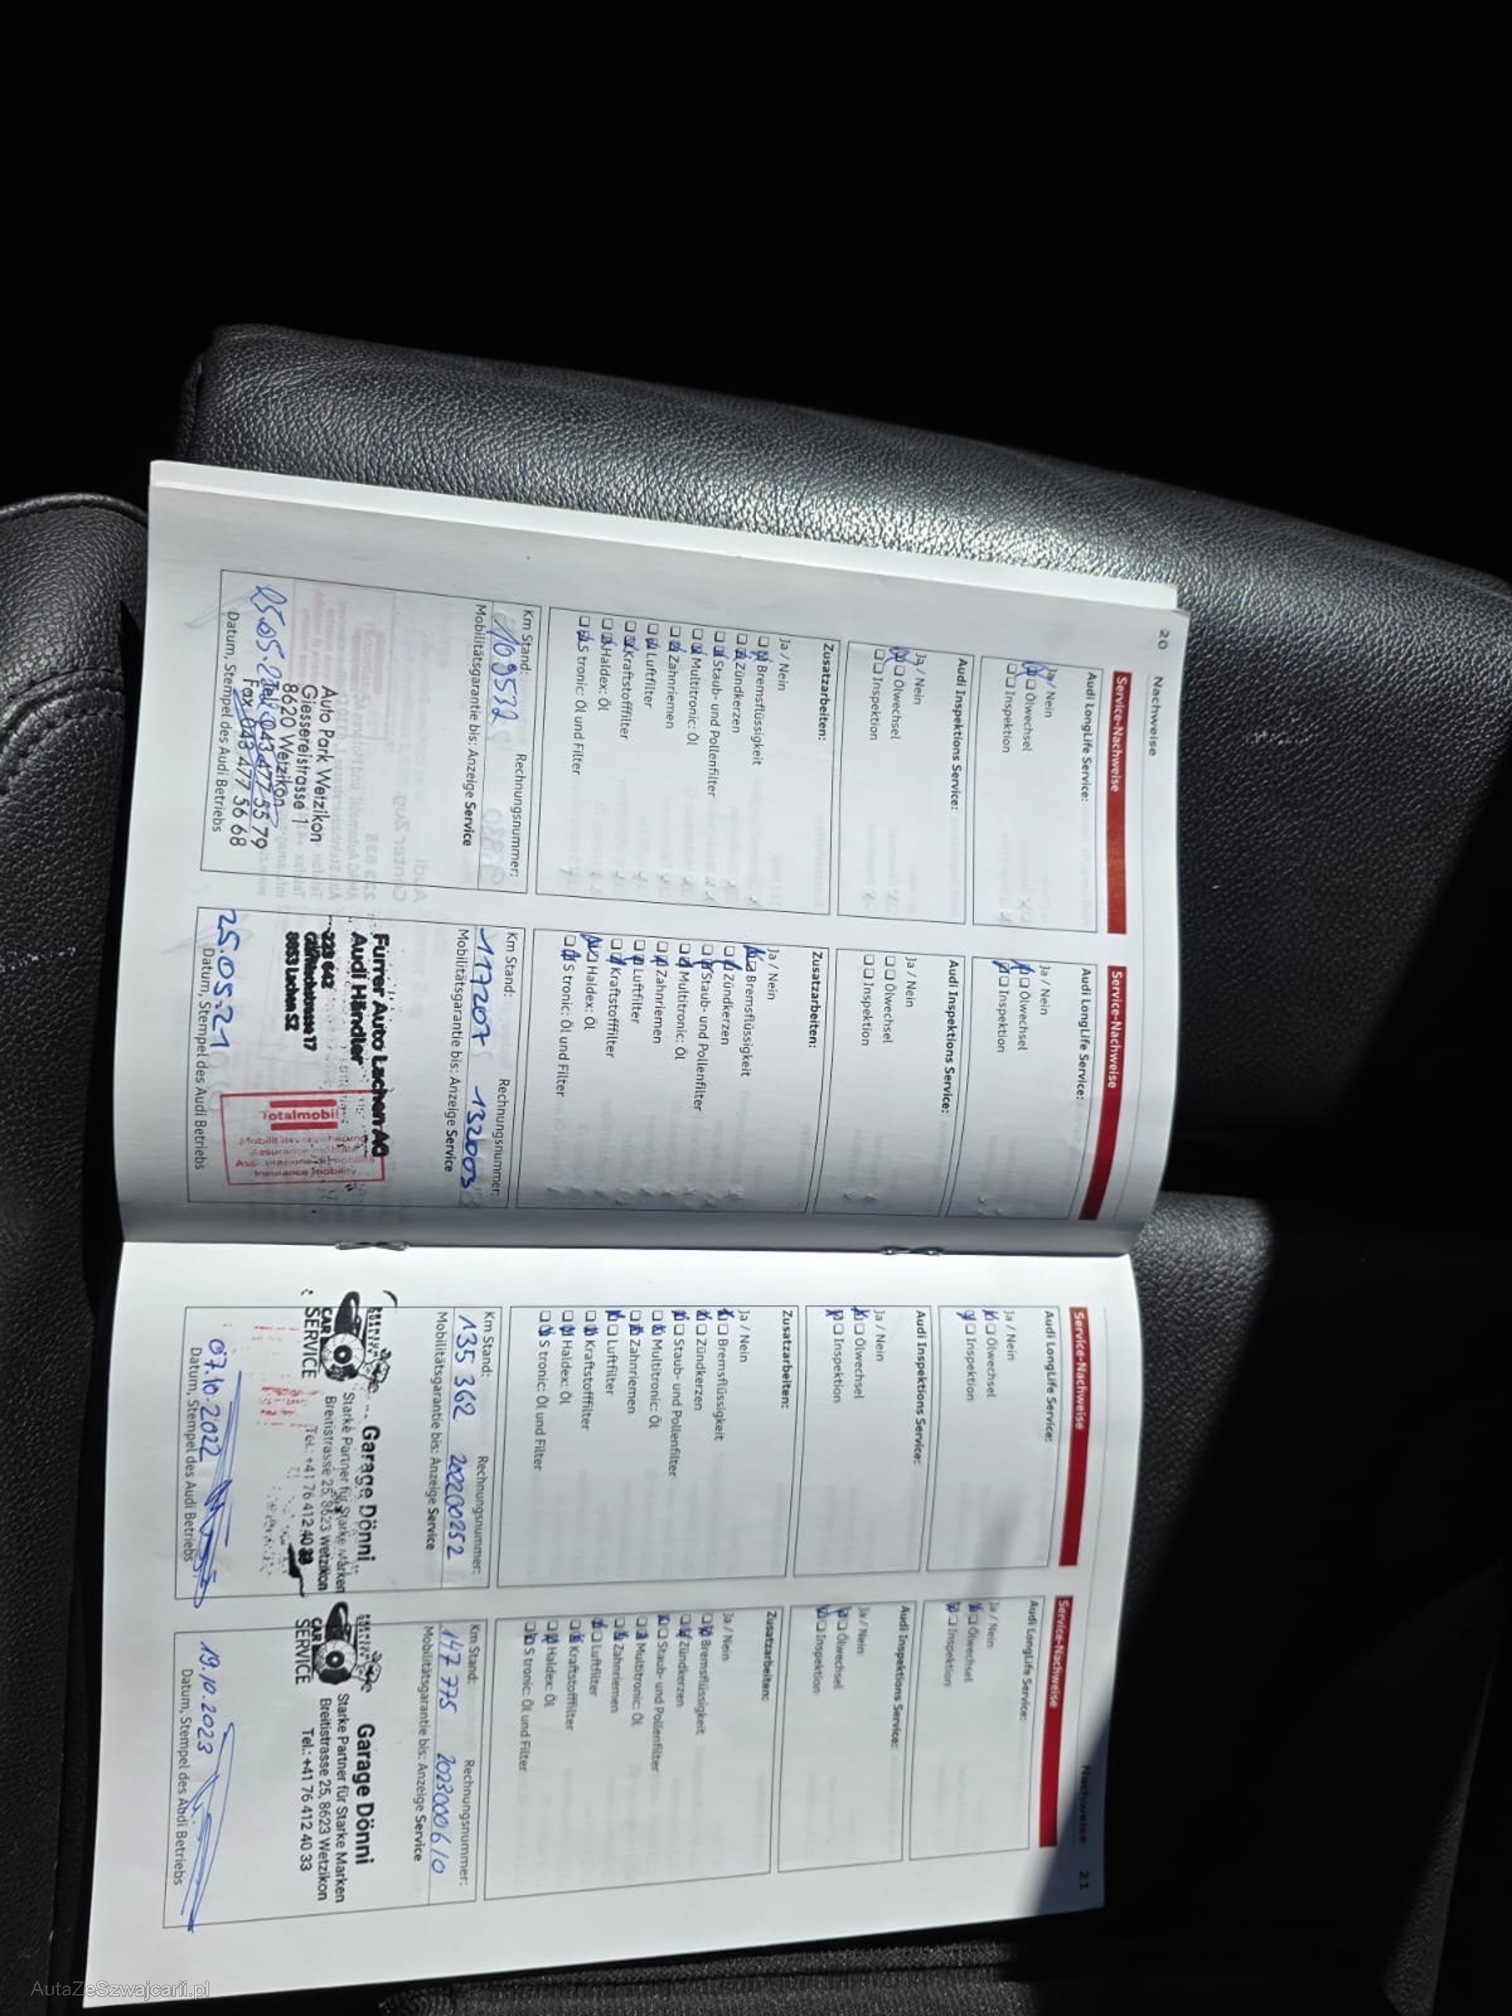 20 Nachweise
Service-Nachweise
Audi LongLife Service:
Ja / Nein
Ölwechsel
Inspektion
Audi Inspektions Service:
Ja / Nein
Ölwechsel
Inspektion
Zusatzarbeiten:
Ja / Nein
Bremsflüssigkeit
Zündkerzen
Staub- und Pollenfilter
Multitronic: Öl
Zahnriemen
Luftfilter
Kraftstofffilter
Haldex: Öl
S tronic: Öl und Filter
Km Stand: Rechnungsnummer:
109532
Mobilitätsgarantie bis: Anzeige Service
Auto Park Wetzikon
Giessereistrasse 1
8620 Wetzikon
Tel. 043 477 55 79
Fax 043 477 56 68
Datum, Stempel des Audi Betriebs
Service-Nachweise
Audi LongLife Service:
Ja / Nein
Ölwechsel
Inspektion
Audi Inspektions Service:
Ja / Nein
Ölwechsel
Inspektion
Zusatzarbeiten:
Ja / Nein
Bremsflüssigkeit
Zündkerzen
Staub- und Pollenfilter
Multitronic: Öl
Zahnriemen
Luftfilter
Kraftstofffilter
Haldex: Öl
S tronic: Öl und Filter
Km Stand: Rechnungsnummer:
117207 132003
Mobilitätsgarantie bis: Anzeige Service
Furrer Auto Lachen AG
Audi Händler
223 642
8853 Lachen SZ
Totalmobil
Insurance mobility
25.05.21
Datum, Stempel des Audi Betriebs
Nachweise 21
Service-Nachweise
Audi LongLife Service:
Ja / Nein
Ölwechsel
Inspektion
Audi Inspektions Service:
Ja / Nein
Ölwechsel
Inspektion
Zusatzarbeiten:
Ja / Nein
Bremsflüssigkeit
Zündkerzen
Staub- und Pollenfilter
Multitronic: Öl
Zahnriemen
Luftfilter
Kraftstofffilter
Haldex: Öl
S tronic: Öl und Filter
Km Stand: Rechnungsnummer:
135 362 202200252
Mobilitätsgarantie bis: Anzeige Service
Garage Dönni
Starke Partner für Starke Marken
Breitistrasse 25, 8623 Wetzikon
Tel.: +41 76 412 40 33
CAR
SERVICE
07.10.2022
Datum, Stempel des Audi Betriebs
Service-Nachweise
Audi LongLife Service:
Ja / Nein
Ölwechsel
Inspektion
Audi Inspektions Service:
Ja / Nein
Ölwechsel
Inspektion
Zusatzarbeiten:
Ja / Nein
Bremsflüssigkeit
Zündkerzen
Staub- und Pollenfilter
Multitronic: Öl
Zahnriemen
Luftfilter
Kraftstofffilter
Haldex: Öl
S tronic: Öl und Filter
Km Stand: Rechnungsnummer:
147 775 2023000610
Mobilitätsgarantie bis: Anzeige Service
Garage Dönni
Starke Partner für Starke Marken
Breitistrasse 25, 8623 Wetzikon
Tel.: +41 76 412 40 33
CAR
SERVICE
19.10.2023
Datum, Stempel des Audi Betriebs
AutaZeSzwajcarii.pl